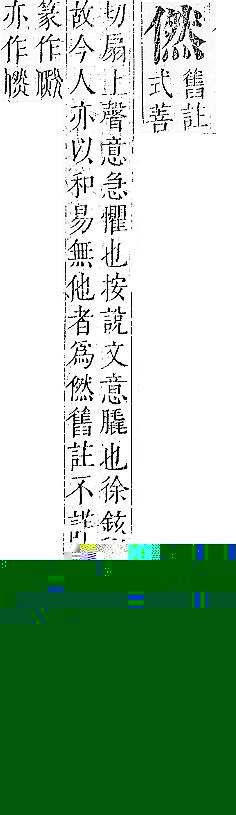 㒄
舊註
式善
切扇上聲意急懼也按說文意也徐鉉
故今人亦以和易無他者爲㒄舊註不詳
篆作
亦作